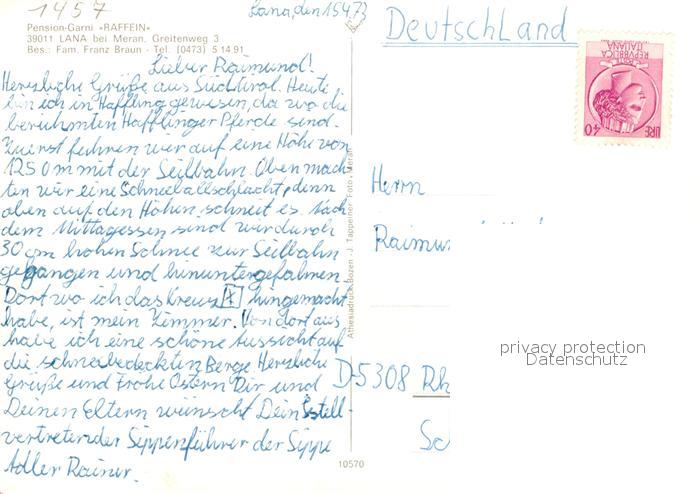 1457
Pension-Garni «RAFFEIN»
39011 LANA bei Meran, Greitenweg 3
Bes.: Fam. Franz Braun - Tel. (0473) 5 14 91
Lana, den 15.4.73
Lieber Raimund!
Herzliche Grüße aus Südtirol. Heute
bin ich in Hafling gewesen, da wo die
berühmten Hafflinger Pferde sind.
Zuerst fuhren wir auf eine Höhe von
1250 m mit der Seilbahn. Oben mach-
ten wir eine Schneeballschlacht, denn
oben auf den Höhen schneit es. Nach
dem Mittagessen sind wir durch
30 cm hohen Schnee zur Seilbahn
gegangen und hinuntergefahren.
Dort wo ich das Kreuz X hingemacht
habe, ist mein Zimmer. Von dort aus
habe ich eine schöne Aussicht auf
die schneebedeckten Berge. Herzliche
Grüße und Frohe Ostern Dir und
Deinen Eltern wünscht Dein stell-
vertretender Sippenführer der Sippe
Adler Rainer.
Athesiadruck Bozen - J. Tappeiner Foto, Meran
10570
Deutschland
POSTE
REPVBBLICA
ITALIANA
LIRE 40
Herrn
Raimun
D-5308 Rh
Sc
privacy protection
Datenschutz